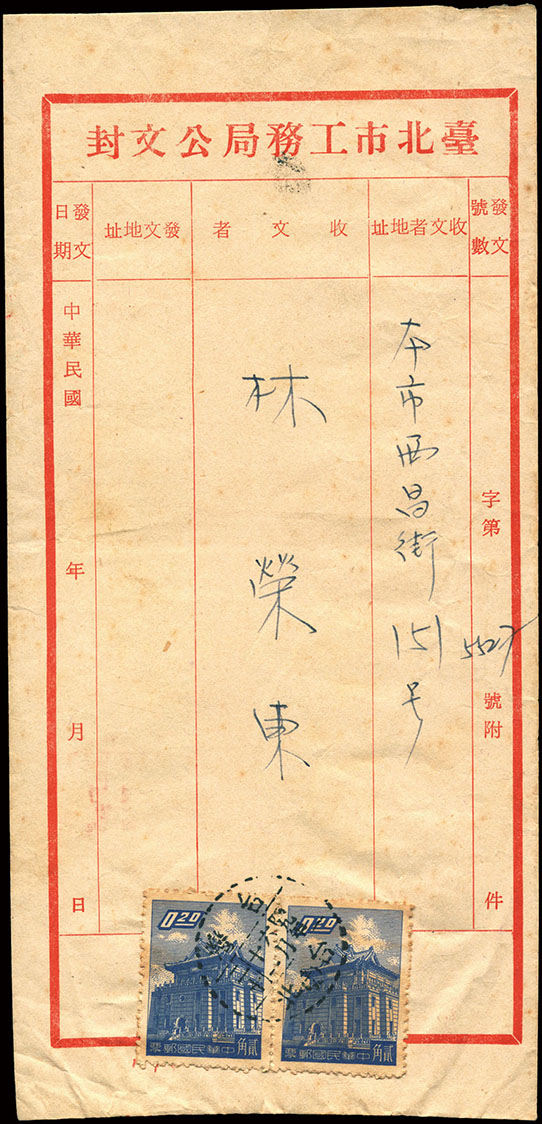 臺北市工務局公文封
發文號數
字第
5527
號附
件
收文者地址
本市西昌街151号
收文者
林榮東
發文地址
發文日期
中華民國
年
月
日
0.20
中華民國郵票
貳角
0.20
中華民國郵票
貳角